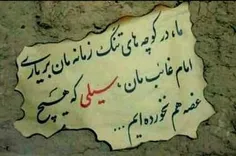 ما، در کوچه های تنگ زمانه مان بر یاری
امام غائب مان، سیلی که هیچ
غصه هم نخورده ایم...